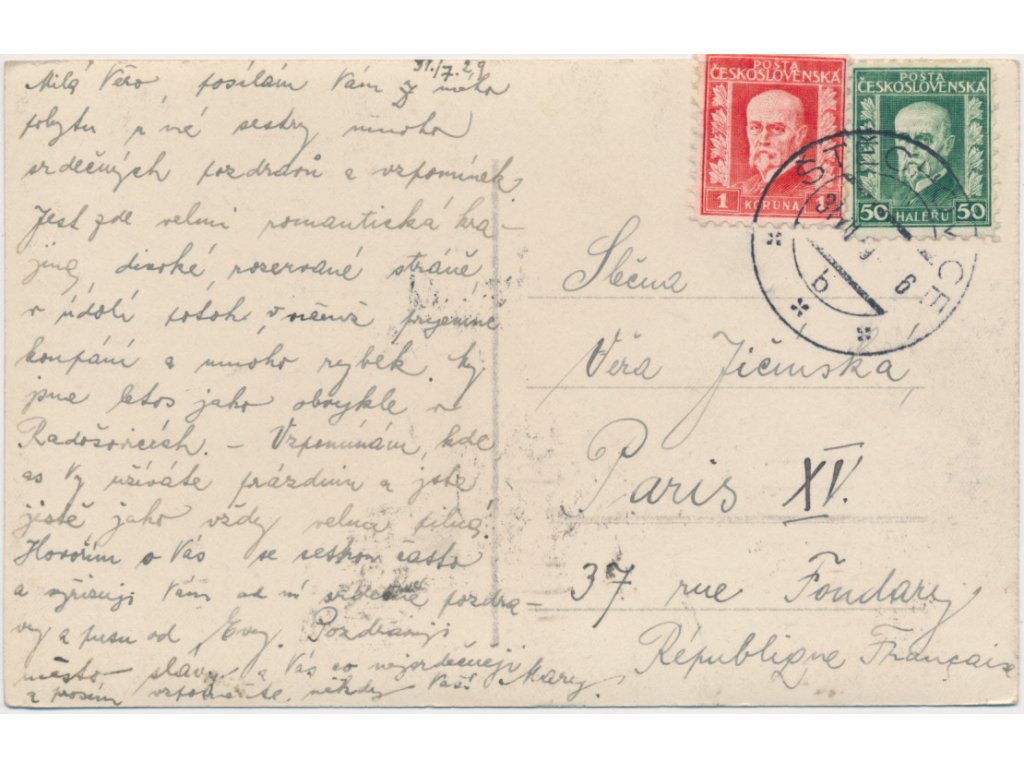 31./7.29
Milá Věro, posílám Vám z mého
pobytu u mé sestry mnoho
srdečných pozdravů a vzpomínek.
Jest zde velmi romantická kra-
jina, divoké rozervané stráně,
v údolí potok, v němž příjemné
koupání a mnoho rybek. My
jsme letos jako obvykle v
Radošovicích. – Vzpomínám, kde
as Vy užíváte prázdnin a jste
jistě jako vždy velmi pilná.
Hovořím o Vás se sestrou často
a vyřizuji Vám od ní srdečné pozdra-
vy a pusu od Evy. Pozdravuji
město slávy a Vás co nejsrdečněji
a prosím vzpomeňte někdy Vaší Mary.
POŠTA
ČESKOSLOVENSKÁ
1 KORUNA 1
POŠTA
ČESKOSLOVENSKÁ
50 HALÉŘŮ 50
b
6
Slečna
Věra Jičínská,
Paris XV.
37. rue Fondary
République Française